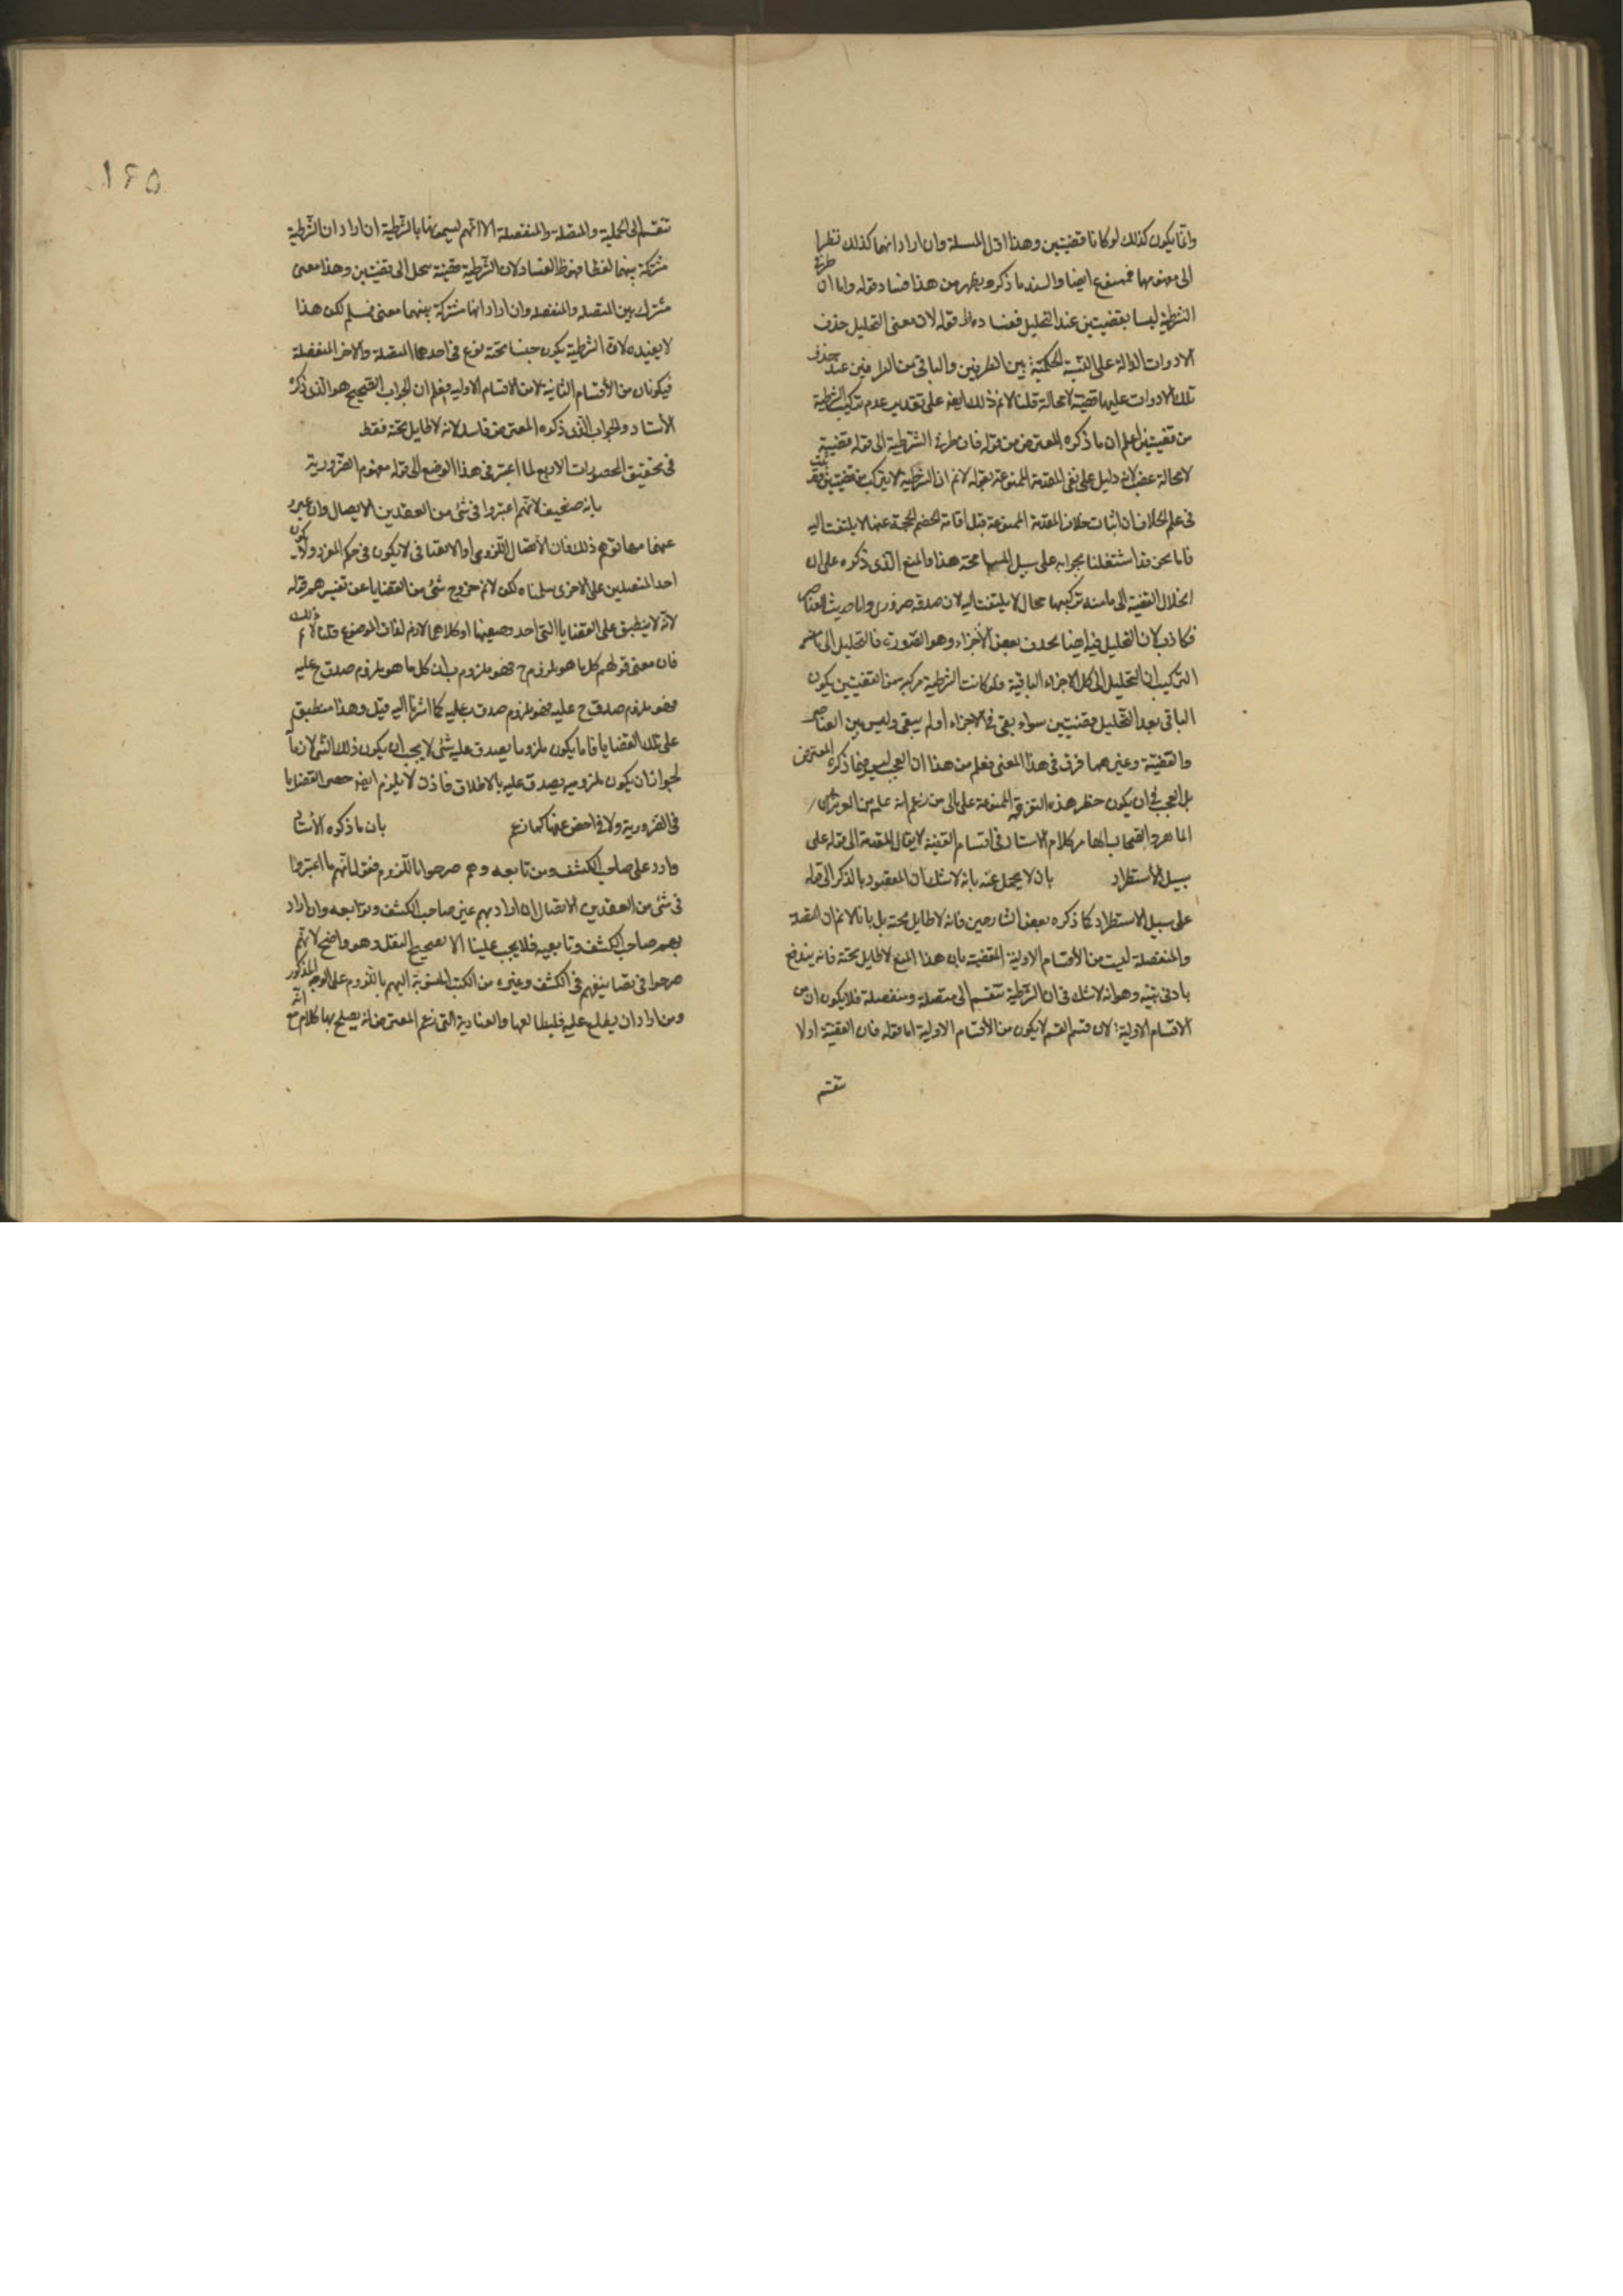 وانما يكون كذلك لو كانا قضيتين وهذا اول المسئلة وان اراد انهما كذلك نظرا
الى مفهومهما فممنوع ايضا والسند ما ذكره يظهر من هذا فساد قوله واما ان طرفي
الشرطية ليسا بقضيتين عند التحليل ففساده ظ قوله لان معنى التحليل حذف
الادوات الدالة على النسبة الحكمية بين الطرفين والباقي من الطرفين عند حذف
تلك الادوات عليها قضية لا محالة قلنا لانم ذلك ايضا على تقدير عدم تركيب الشرطية
من قضيتين اعلم ان ما ذكره المعترض من قوله فان طرفي الشرطية الى قوله قضيته
لا محالة غصب لانه دليل على نفي المقدمة الممنوعة بقوله لانم ان الشرطية لا يتركب من قضيتين
في علم الخلاف ان اثبات خلاف المقدمة الممنوعة قبل اقامة الخصم الحجة عنها لا يلتفت اليه
فاما نحن فقد اشتغلنا بجوابه على سبيل المسامحة هذا والمنع الذي ذكره على ان
انحلال القضية الى ما منه تركيبها محال لا يلتفت اليه لان صدقه ضروري واما حديث العناصر
فكاذب لان التحليل فيه ايضا بحذف بعض الأجزاء وهو الصورة فالتحليل الى ما منه
التركيب اي التحليل الى كل الاجزاء الباقية فلو كانت الشرطية مركبة من القضيتين يكون
الباقي بعد التحليل قضيتين سواء بقي في الاجزاء او لم يبقى وليس بين العناصر
والقضية وغيرهما فرق في هذا المعنى فعلم من هذا ان العجب ليس فيما ذكره المعترض
بل العجب في ان يكون خطر هذه التفرقة الممنوعة على بالي من زعم انه عليه من
الماهر والصحاب كلام الاستاد في اقسام القضية لا يقال المقدمة الى قوله على
سبيل الأستطراد بان لا يحمل عنه بانه لا شك ان المقصود بالذكر الى قوله
على سبيل الاستطراد كما ذكره بعض الشارحين فانه لا طايل تحته بل بانا لانم ان المتصلة
والمنفصلة ليست من الأقسام الاولية للقضية بان هذا المنع لا طايل تحته فانه يندفع
بادنى تنبيه وهو انه لا شك في ان الشرطية تنقسم الى متصلة ومنفصلة فلا يكونان من
الاقسام الاولية لان قسم القسم لا يكون من الأقسام الاولية اما قوله فان القضية اولا
تنقسم
١٤٥
تنقسم الى الحملية والمتصلة والمنفصلة الا انهم يسمونها بالشرطية ان اراد ان الشرطية
مشتركة بينهما لفظا فهو ظ الفساد لان الشرطية قضية تنحل الى قضيتين وهذا معنى
مشترك بين المتصلة والمنفصلة وان اراد انها مشتركة بينهما معنى فمسلم لكن هذا
لا يفيده لان الشرطية يكون جنسا تحته نوع في احدهما المتصلة والاخر المنفصلة
فيكونان من الأقسام الثانية لا من الاقسام الاولية فعلم ان الجواب الصحيح هو الذي ذكره
الأستاد والجواب الذي ذكره المعترض فاسد لانه لا طايل تحته فقط
في تحقيق المحصورات الاربع لما اعتبر في هذا الوضع الى قوله مفهوم الضرورية
بانه ضعيف لانهم اعتبروا في شئ من العقدين الاتصال وان عبروا
عنهما بما توهم ذلك فان الأتصال اللزومي او الاتفاقي لا يكون في حكم المفرد ولا يكون
احد المتصلين على الاخرى سلمناه لكن لانم خروج شئ من القضايا عن تفسيرهم قوله
لانه لا ينطبق على القضايا التي احد وصفيها او كلاهما لازم لذات الموضوع قلنا لانم ذلك
فان معنى قولهم كل ما هو ملزوم ج فهو ملزوم ب ان كل ما هو ملزوم صدق ج عليه
فهو ملزوم صدق ج عليه فهو ملزوم صدق ب عليه كما اشرنا اليه قبل وهذا منطبق
على تلك القضايا فاما يكون ملزوما يصدق عليه شئ لا يجب ان يكون ذلك الشئ لازما
لجواز ان يكون ملزوميه يصدق عليه بالاطلاق فاذن لا يلزم ايضا حصر القضايا
في الضرورية ولا في اخص عنها كما زعم بان ما ذكره الأستاد
وارد على صاحب الكشف ومن تابعه وهم صرحوا باللزوم فقوله انهم ما اعتبروا
في شئ من العقدين الاتصال ان اراد بهم غير صاحب الكشف ومتابعه وان اراد
بهم صاحب الكشف وتابعيه فلا يجب علينا الا تصحيح النقل وهو واضح لانهم
صرحوا في تصانيفهم في الكشف وغيره من الكتب المنسوبة اليهم باللزوم على الوجه المذكور
ومن اراد ان يطلع عليه فليطالعها والعناية التي زعم المعترض انه يصلح بها كلام